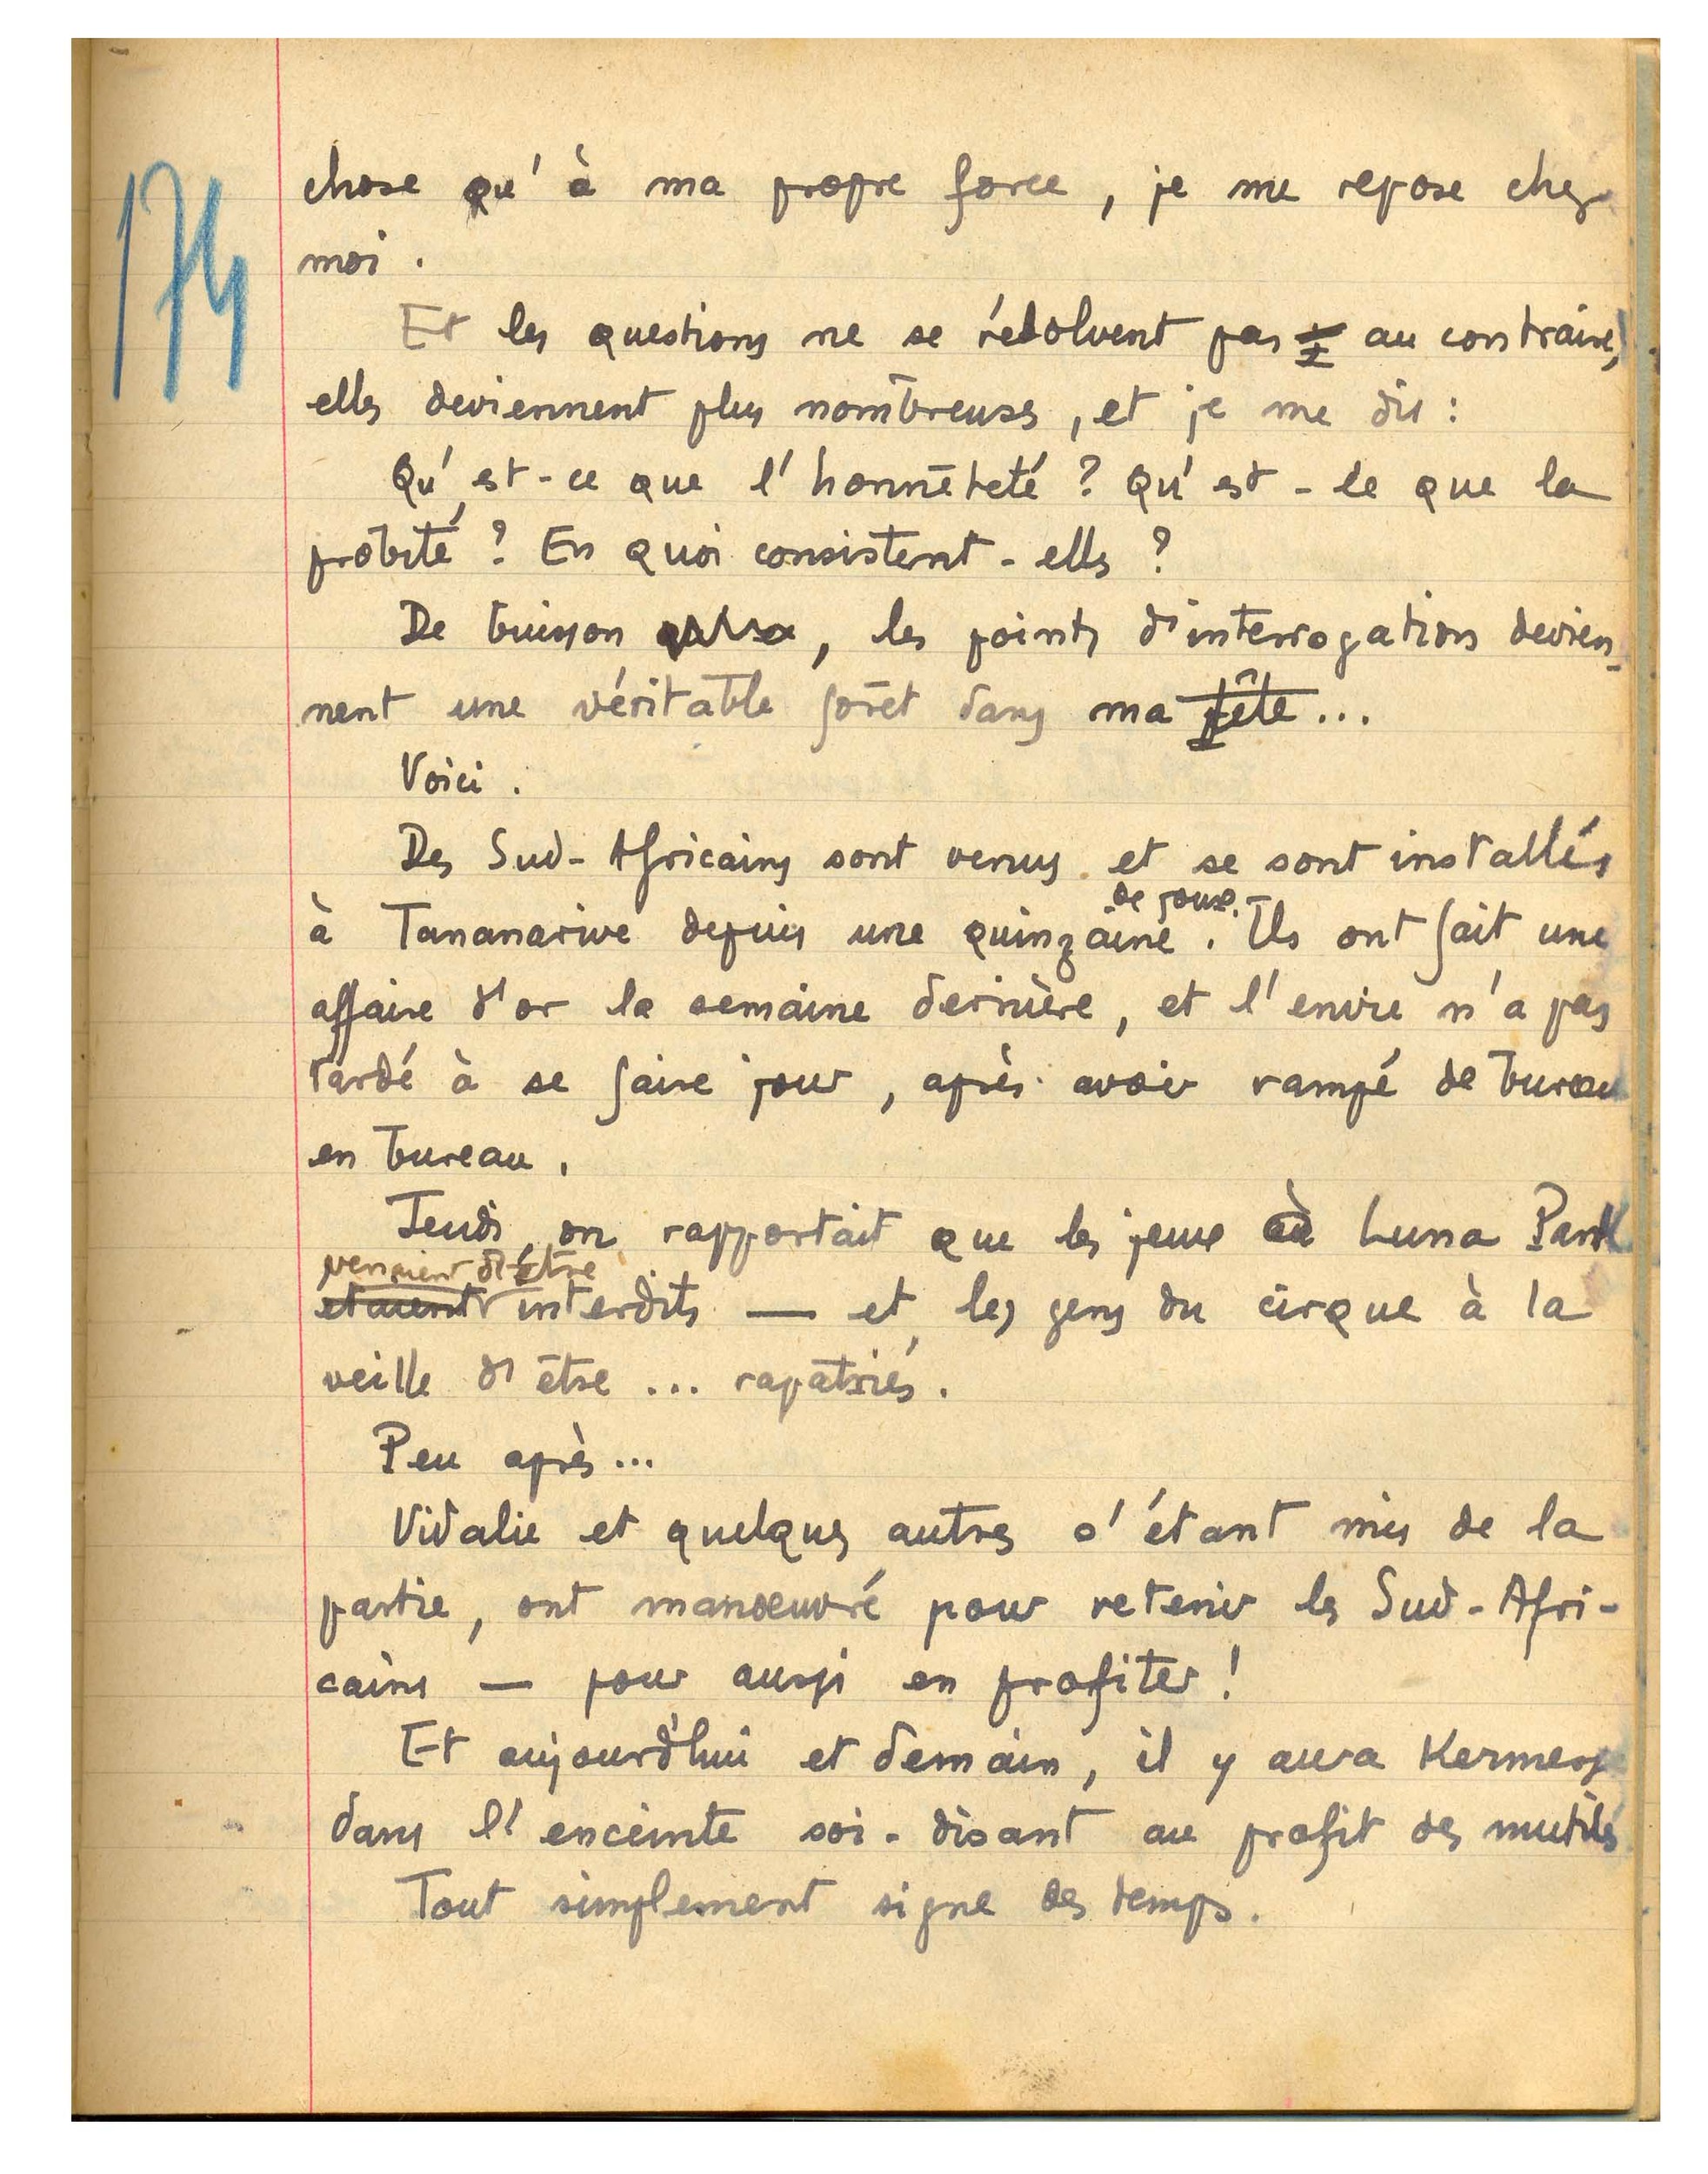 174
chose qu'à ma propre force, je me repose chez
moi.
Et les questions ne se résolvent pas ; au contraire,
elles deviennent plus nombreuses, et je me dis :
Qu'est-ce que l'honnêteté ? Qu'est-ce que la
probité ? En quoi consistent-elles ?
De buisson, les points d'interrogation devien-
nent une véritable forêt dans ma tête...
Voici.
Des Sud-Africains sont venus et se sont installés
de jours.
à Tananarive depuis une quinzaine. Ils ont fait une
affaire d'or la semaine dernière, et l'envie n'a pas
tardé à se faire jour, après avoir rampé de bureau
en bureau.
Jeudi, on rapportait que les jeux à Luna Park
venaient d'être
étaient interdits — et les gens du cirque à la
veille d'être... rapatriés.
Peu après...
Vidalie et quelques autres s'étant mis de la
partie, ont manœuvré pour retenir les Sud-Afri-
cains — pour aussi en profiter !
Et aujourd'hui et demain, il y aura Kermesse
dans l'enceinte soi-disant au profit des mutilés
Tout simplement signe des temps.